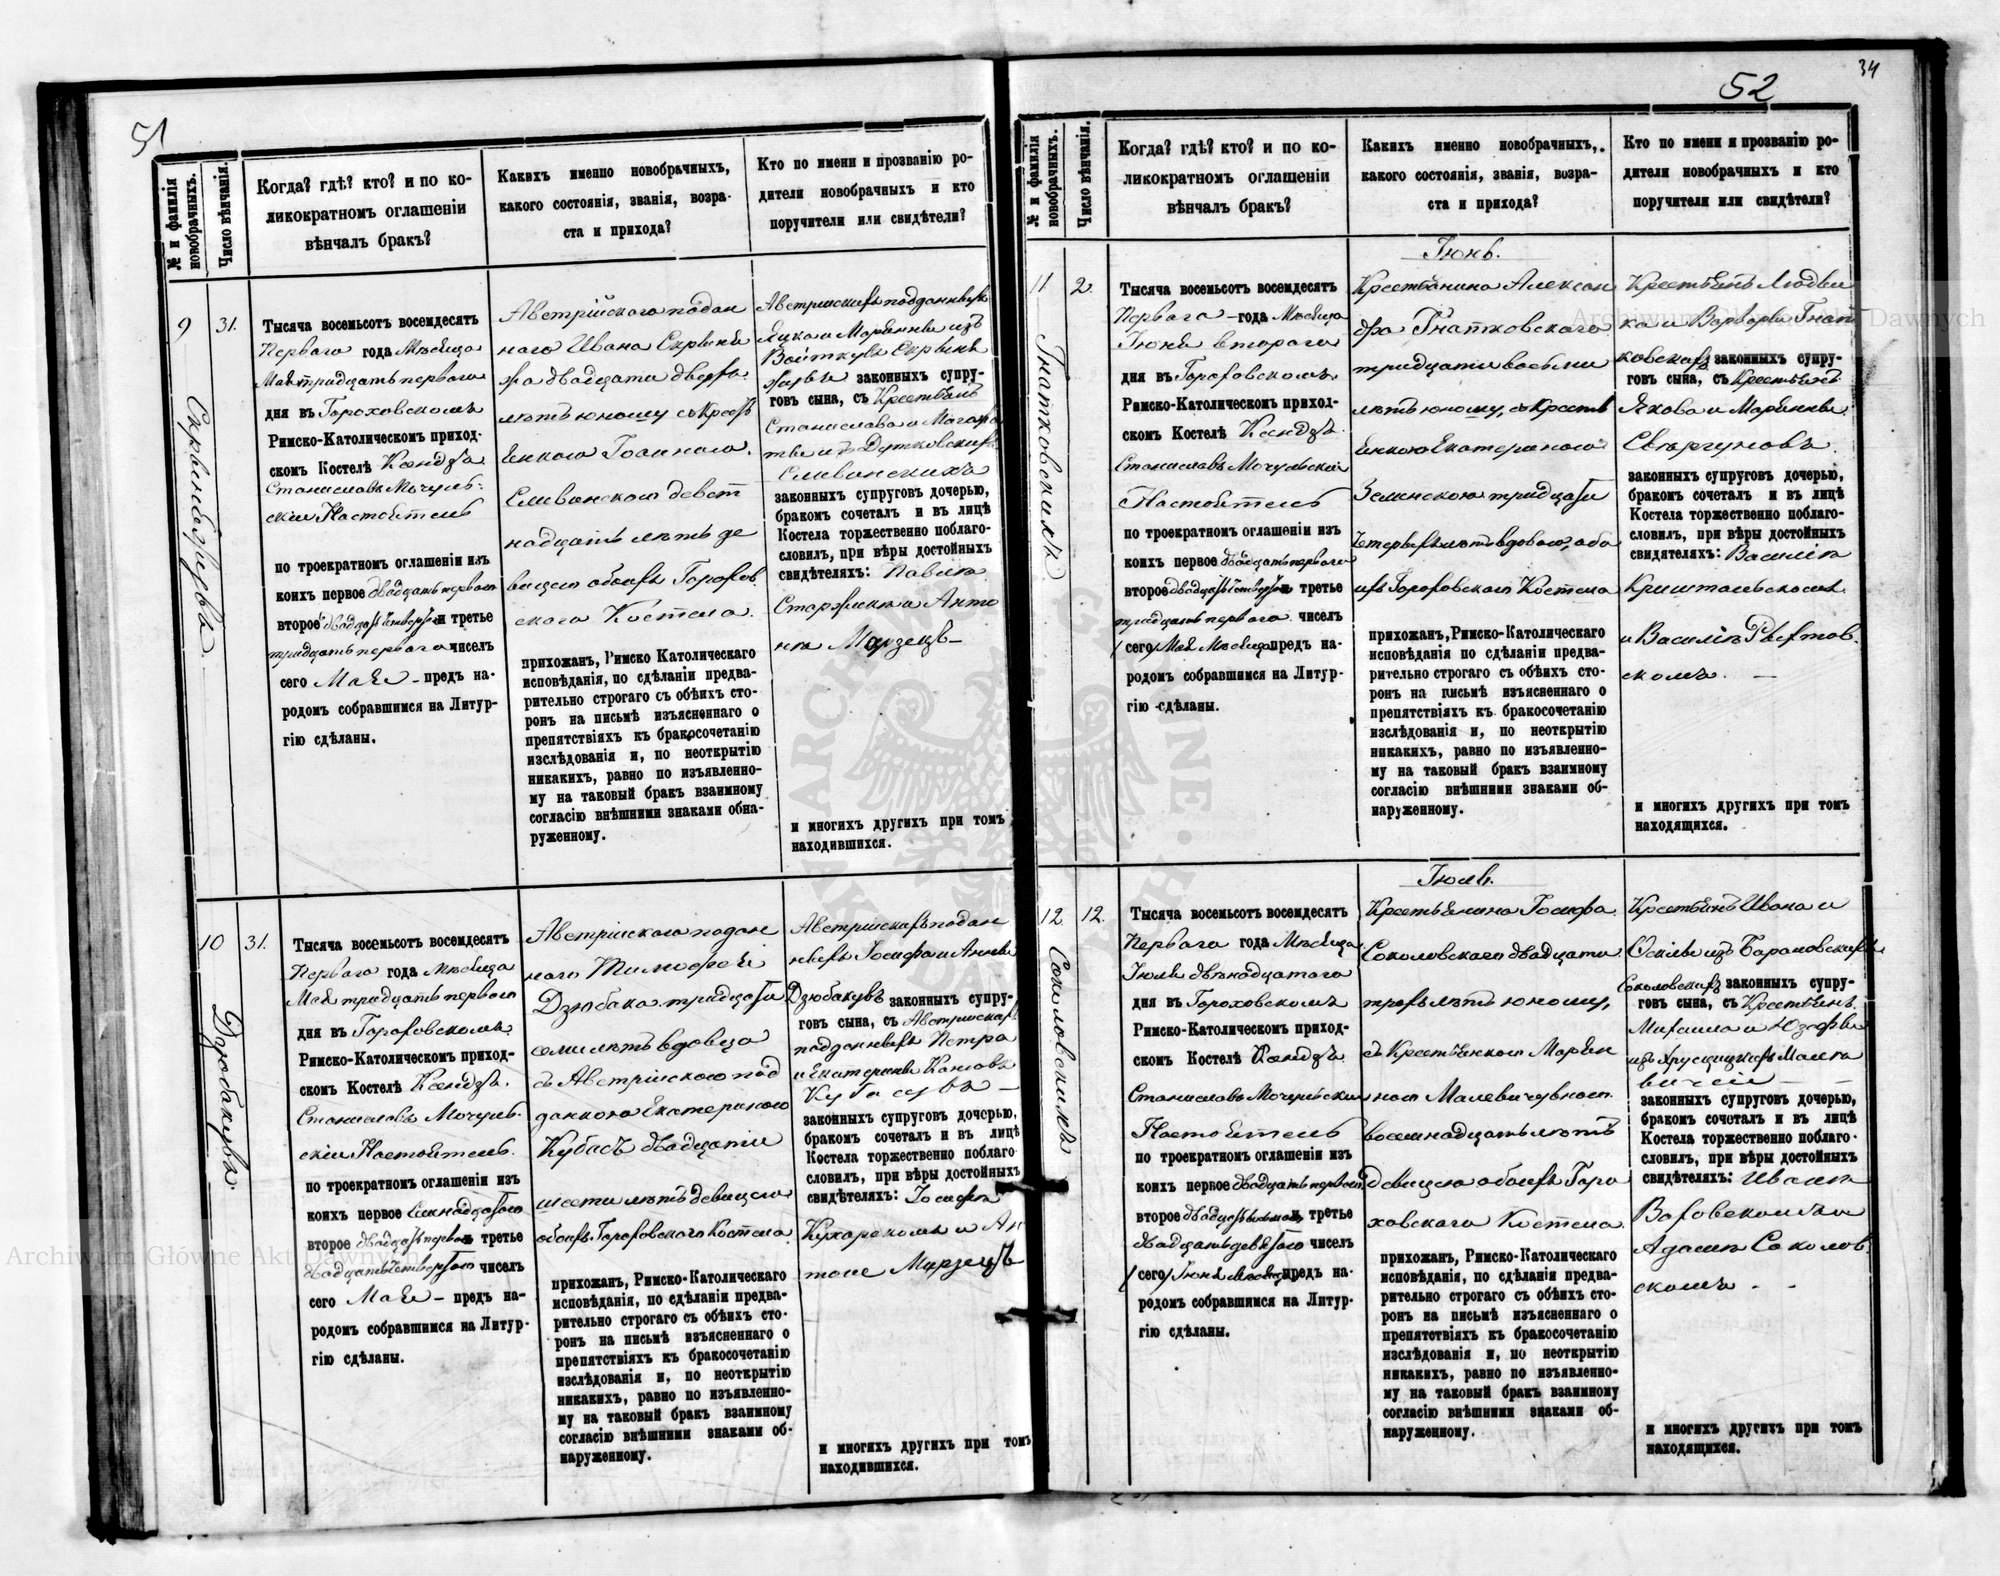 51
№ и фамилія новобрачныхъ.
Число вѣнчанія.
Когда? гдѣ? кто? и по ко-
ликократномъ оглашеніи
вѣнчалъ бракъ?
Какихъ именно новобрачныхъ,
какого состоянія, званія, возра-
ста и прихода?
Кто по имени и прозванію ро-
дители новобрачныхъ и кто
поручители или свидѣтели?
9
31.
Тысяча восемьсотъ восемдесятъ
Перваго года Мѣсяца
Мая тридцать перваго
дня въ Гороховскомъ
Римско-Католическомъ приход-
скомъ Костелѣ Ксендзъ
Станиславъ Мочуль-
скій Настоятель
по троекратномъ оглашеніи изъ
коихъ первое двадцать перваго
второе двадцать четвертаго и третье
тридцать перваго чиселъ
сего Мая - предъ на-
родомъ собравшимся на Литур-
гію сдѣланы.
Австрійскаго поддан
наго Ивана
двадцати двухъ
лѣтъ юношу съ Крестъ
янкою Іоанною
Сливинскою девят
надцать лѣтъ дѣ
вицею обоихъ Горохов
скаго Костела
прихожанъ, Римско Католическаго
исповѣданія, по сдѣланіи предва-
рительно строгаго съ обѣихъ сто-
ронъ на письмѣ изъясненнаго о
препятствіяхъ къ бракосочетанію
изслѣдованія и, по неоткрытію
никакихъ, равно по изъявленно-
му на таковый бракъ взаимному
согласію внѣшними знаками обна-
руженному.
Австрійскихъ подданныхъ
Яцка и Маріянны изъ
законныхъ супру-
говъ сына, съ Крестьянъ
Станислава и
изъ Дутковскихъ
Сливинскихъ
законныхъ супруговъ дочерью,
бракомъ сочеталъ и въ лицѣ
Костела торжественно поблаго-
словилъ, при вѣры достойныхъ
свидѣтеляхъ: Павлѣ
и Анто
нѣ Марзецъ
и многихъ другихъ при томъ
находившихся.
10
31.
Дзюбакувъ.
Тысяча восемьсотъ восемдесятъ
Перваго года Мѣсяца
Мая тридцать перваго
дня въ Гороховскомъ
Римско-Католическомъ приход-
скомъ Костелѣ Ксендзъ
Станиславъ Мочуль-
скій Настоятель
по троекратномъ оглашеніи изъ
коихъ первое
второе двадцать перваго третье
двадцать четвертаго чиселъ
сего Мая - предъ на-
родомъ собравшимся на Литур-
гію сдѣланы.
Австрійскаго поддан
наго Тимофея
Дзюбака тридцати
семи лѣтъ вдовца
съ Австрійскою под
данкою Екатериною
Кубасъ двадцати
шести лѣтъ дѣвицею
обоихъ Гороховскаго Костела
прихожанъ, Римско-Католическаго
исповѣданія, по сдѣланіи предва-
рительно строгаго съ обѣихъ сто-
ронъ на письмѣ изъясненнаго о
препятствіяхъ къ бракосочетанію
изслѣдованія и, по неоткрытію
никакихъ, равно по изъявленно-
му на таковый бракъ взаимному
согласію внѣшними знаками об-
наруженному.
Австрійскихъ поддан
ныхъ Іосифа и Анны
Дзюбакувъ законныхъ супру-
говъ сына, съ Австрійскихъ
подданныхъ Петра
и Екатерины
Кубасувъ
законныхъ супруговъ дочерью,
бракомъ сочеталъ и въ лицѣ
Костела торжественно поблаго-
словилъ, при вѣры достойныхъ
свидѣтеляхъ: Іосифѣ
Кухарскомъ и Ан
тонѣ Марзецъ
и многихъ другихъ при томъ
находившихся.
52
34
№ и фамилія новобрачныхъ.
Число вѣнчанія.
Когда? гдѣ? кто? и по ко-
ликократномъ оглашеніи
вѣнчалъ бракъ?
Какихъ именно новобрачныхъ,
какого состоянія, званія, возра-
ста и прихода?
Кто по имени и прозванію ро-
дители новобрачныхъ и кто
поручители или свидѣтели?
Іюнь.
11
2.
Гнатковскихъ
Тысяча восемьсотъ восемдесятъ
Перваго - года Мѣсяца
Іюня втораго
дня въ Гороховскомъ
Римско-Католическомъ приход-
скомъ Костелѣ Ксендзъ
Станиславъ Мочульскій
Настоятель
по троекратномъ оглашеніи изъ
коихъ первое двадцать перваго
второе двадцать четвертаго третье
тридцать перваго чиселъ
(сего) Мая Мѣсяца предъ на-
родомъ собравшимся на Литур-
гію сдѣланы.
Крестьянина Алексан
дра Гнатковскаго
тридцати восьми
лѣтъ юношу, съ Кресть
янкою Екатериною
Зелинскою тридцати
четырехъ лѣтъ вдовою, обо
ихъ Гороховскаго Костела
прихожанъ, Римско-Католическаго
исповѣданія по сдѣланіи предва-
рительно строгаго съ обѣихъ сто-
ронъ на письмѣ изъясненнаго о
препятствіяхъ къ бракосочетанію
изслѣдованія и, по неоткрытію
никакихъ, равно по изъявленно-
му на таковый бракъ взаимному
согласію внѣшними знаками об-
наруженному.
Крестьянъ Людви
ка и Варвары Гнат
ковскихъ законныхъ супру-
говъ сына, съ Крестьянъ
Якова и Маріянны
законныхъ супруговъ дочерью,
бракомъ сочеталъ и въ лицѣ
Костела торжественно поблаго-
словилъ, при вѣры достойныхъ
свидятеляхъ: Василіѣ
Кришталскомъ
и Василіѣ
скомъ. -
и многихъ другихъ при томъ
находящихся.
Іюль.
12
12.
Соколовскихъ
Тысяча восемьсотъ восемдесятъ
Перваго года Мѣсяца
Іюля двѣнадцатаго
дня въ Гороховскомъ
Римско-Католическомъ приход-
скомъ Костелѣ Ксендзъ
Станиславъ Мочульскій
Настоятель
по троекратномъ оглашеніи изъ
коихъ первое двадцать перваго
второе и третье
двадцать девятаго чиселъ
(сего) Іюня Мѣсяца предъ на-
родомъ собравшимся на Литур-
гію сдѣланы.
Крестьянина Іосифа
Соколовскаго двадцати
трехъ лѣтъ юношу,
съ Крестьянкою Маріян
ною Малевичувною
восемнадцать лѣтъ
дѣвицею обоихъ Горо
ховскаго Костела
прихожанъ, Римско-Католическаго
исповѣданія, по сдѣланіи предва-
рительно строгаго съ обѣихъ сто-
ронъ на письмѣ изъясненнаго о
препятствіяхъ къ бракосочетанію
изслѣдованія и, по неоткрытію
никакихъ, равно по изъявленно-
му на таковый бракъ взаимному
согласію внѣшними знаками об-
наруженному.
Крестьянъ Ивана и
изъ Барановскихъ
Соколовскихъ законныхъ супру-
говъ сына, съ Крестьянъ
Михаила и Юзефы
изъ Малеви
законныхъ супруговъ дочерью,
бракомъ сочеталъ и въ лицѣ
Костела торжественно поблаго-
словилъ, при вѣры достойныхъ
свидѣтеляхъ: Иванѣ
и
Адамѣ Соколов
скомъ - -
и многихъ другихъ при томъ
находящихся.
Archiwum Główne Akt Dawnych
Archiwum Główne Akt Dawnych